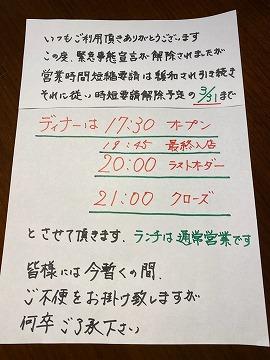 いつもご利用頂きありがとうございます
この度、緊急事態宣言が解除されましたが
営業時間短縮要請は緩和され引き続き
それに従い時短要請解除予定の3/31まで
ディナーは 17:30 オープン
19:45 最終入店
20:00 ラストオーダー
21:00 クローズ
とさせて頂きます、ランチは通常営業です
皆様には今暫くの間、
ご不便をお掛け致しますが
何卒ご了承下さい